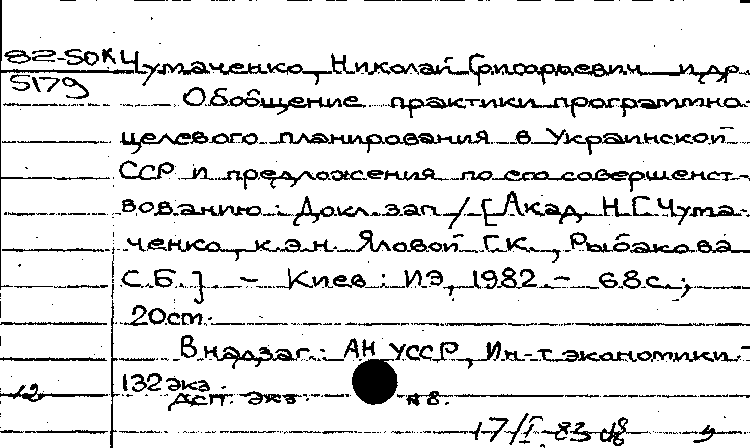 82-5ОК Чумаченко, Николай Григорьевич и др.
5179
Обобщение практики программно-
целевого планирования в Украинской
ССР и предложения по его совершенст-
вованию: Докл. зап / [Акад. Н.Г. Чума-
ченко, к.э.н. Яловой Г.К., Рыбакова
С.Б.]. - Киев: ИЭ, 1982. - 68 с.;
20 см.
В надзаг.: АН УССР, Ин-т экономики. -
132 экз.
12. Деп. экз. N 8.
17/I.83